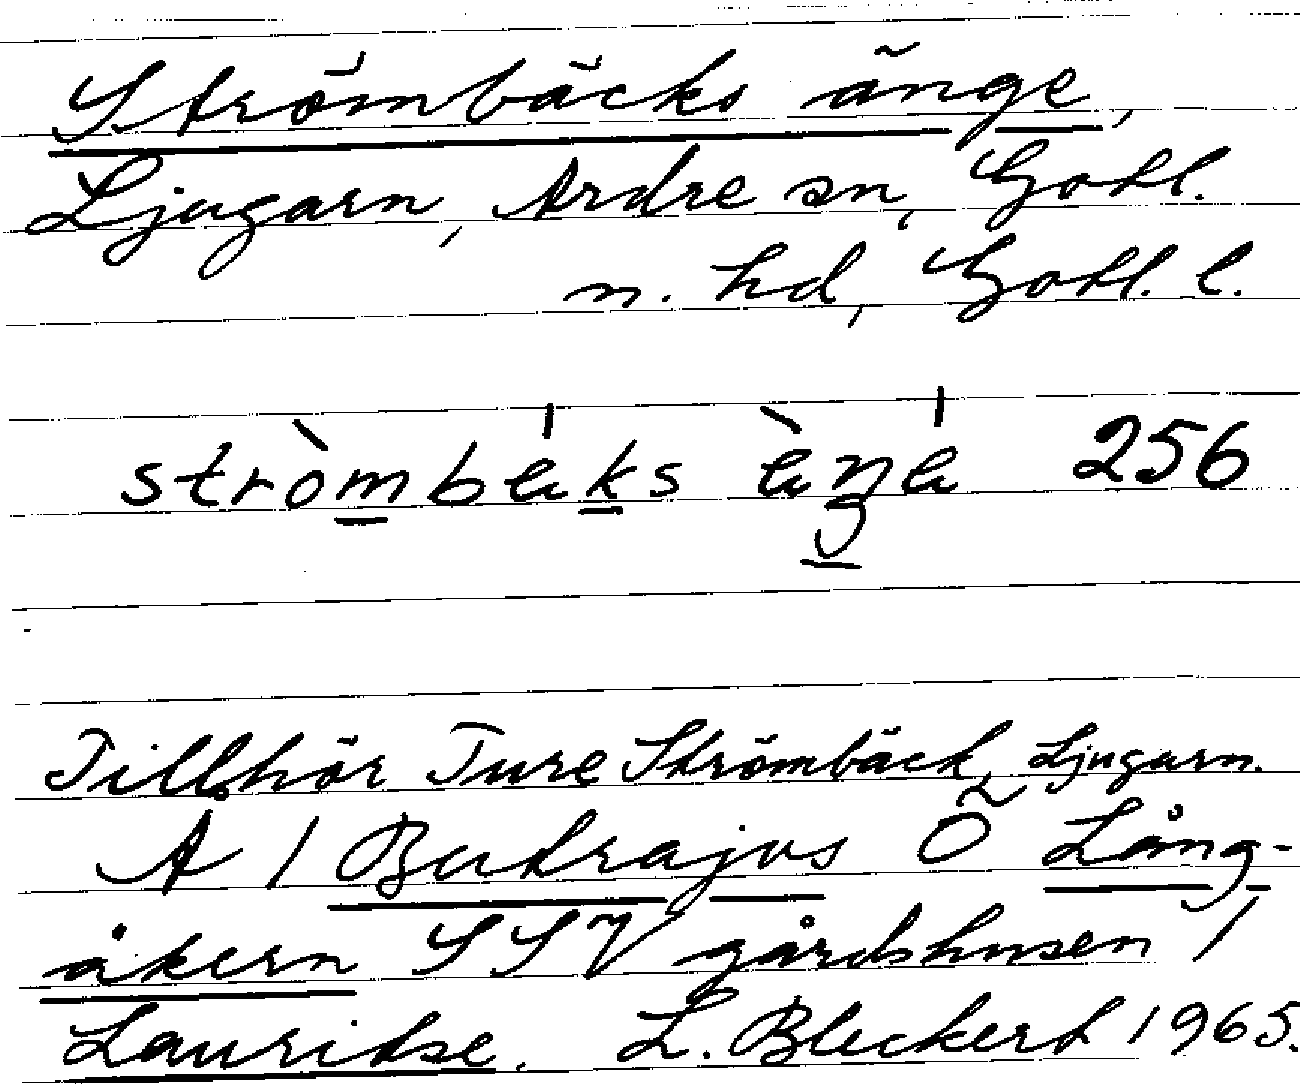 Strömbäcks änge,
Ljugarn, Ardre sn, Gotl.
n. hd, Gotl. l.
stròmbäks ä̀ŋä 256
Tillhör Ture Strömbäck, Ljugarn.
A / Butrajvs Ö Lång-
åkern SSV gårdshusen /
Lauritse. L. Bleckert 1965.